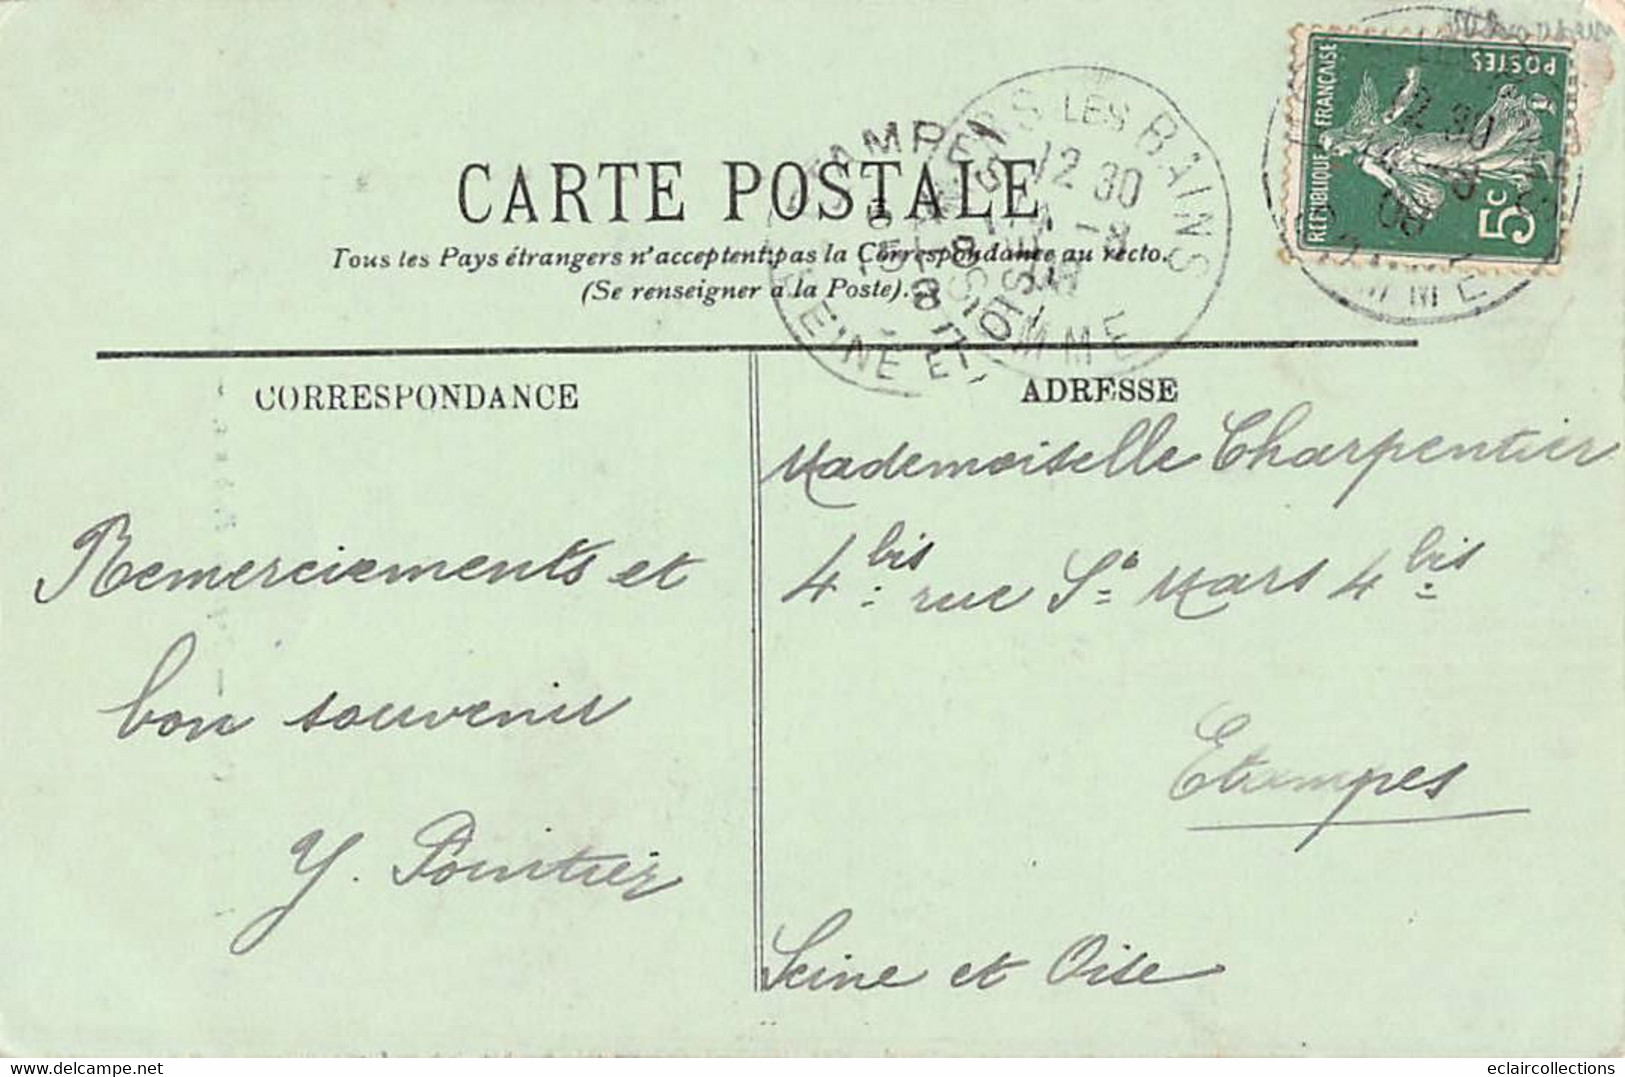 CARTE POSTALE
Tous les Pays étrangers n'acceptent pas la Correspondance au recto.
(Se renseigner à la Poste).
REPUBLIQUE FRANÇAISE
POSTES
5c
LES BAINS
12 30
SOMME
SEINE ET OISE
CORRESPONDANCE
ADRESSE
Remerciements et
bon souvenir
Y. Pointier
Mademoiselle Charpentier
4 bis rue St Mars 4 bis
Etampes
Seine et Oise
eclaircollections